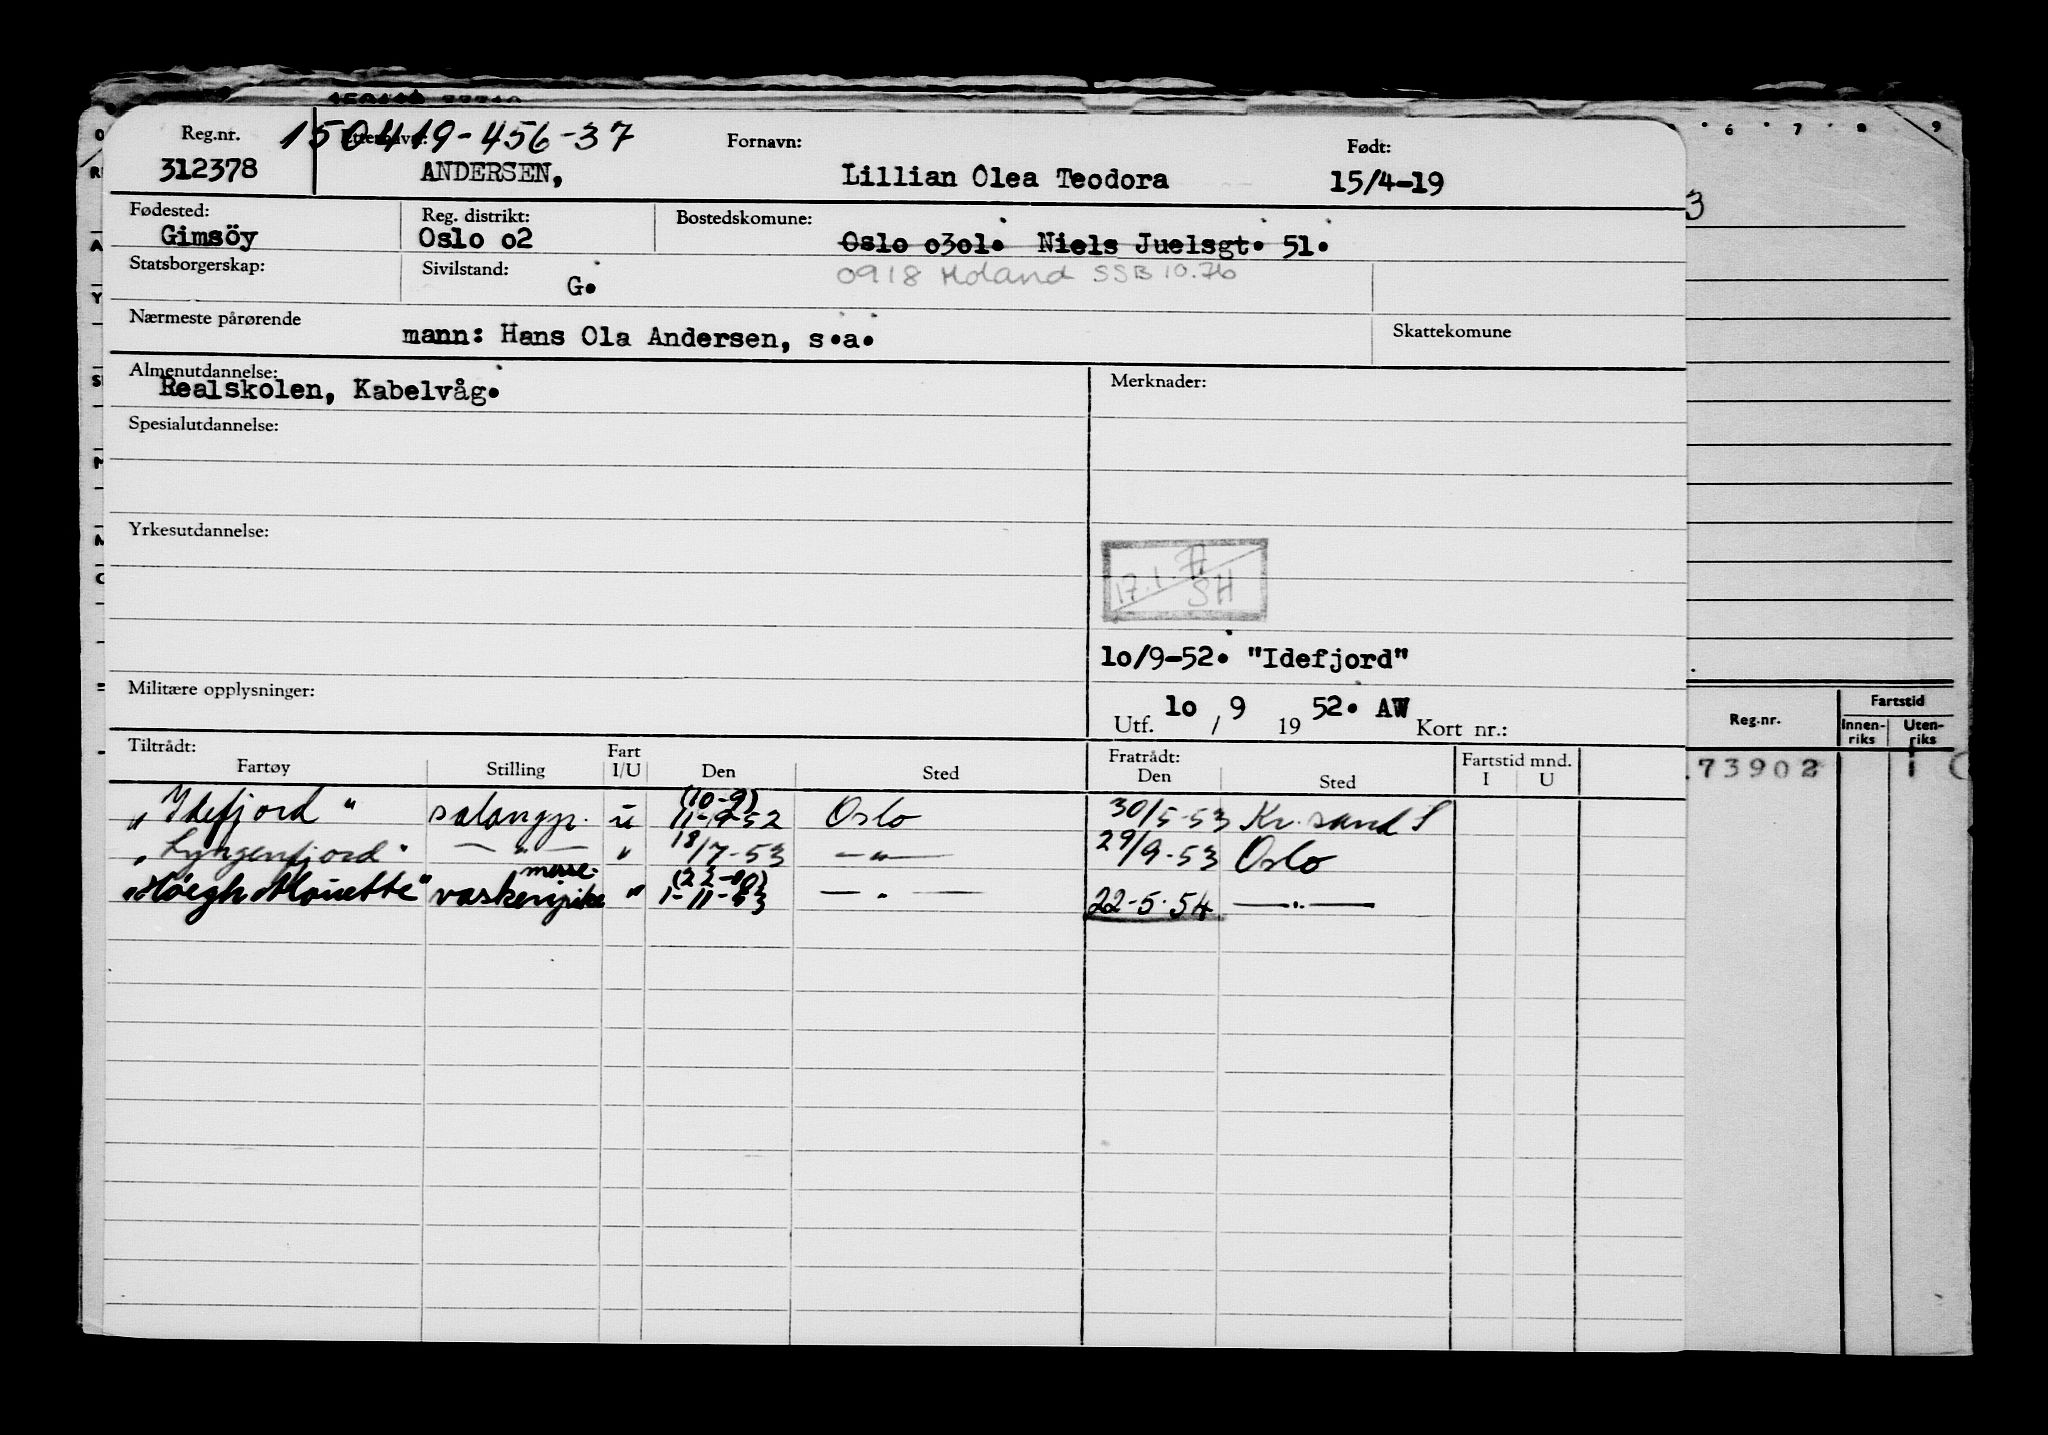 Reg.nr. 150419-456-37 Fornavn: Født:
312378 ANDERSEN, Lillian Olea Teodora 15/4-19
Fødested: Reg. distrikt: Bostedskomune:
Gimsöy Oslo o2 Oslo o3ol. Niels Juelsgt. 51.
Statsborgerskap: Sivilstand: G. 0918 Moland SSB 10.76
Nærmeste pårørende mann: Hans Ola Andersen, s.a. Skattekomune
Almenutdannelse: Merknader:
Realskolen, Kabelvåg.
Spesialutdannelse:
Yrkesutdannelse:
17.1.77
SH
lo/9-52. "Idefjord"
Militære opplysninger:
Utf. lo / 9 19 52. AW Kort nr.:
Tiltrådt: Fart Fratrådt: Fartstid mnd.
Fartøy Stilling I/U Den Sted Den Sted I U
(10-9)
"Idefjord" salongp. u 11-9-52 Oslo 30/5-53 Kr.sand S
"Lyngenfjord" — " — " 18/7-53 — " — 29/9-53 Oslo
messe- (22-10)
"Höegh Mouette" vaskeripike " 1-11-53 — " — 22-5-54 — " —
6 7 8 9
3
Reg.nr. Fartstid
Innen-riks Uten-riks
73902 1